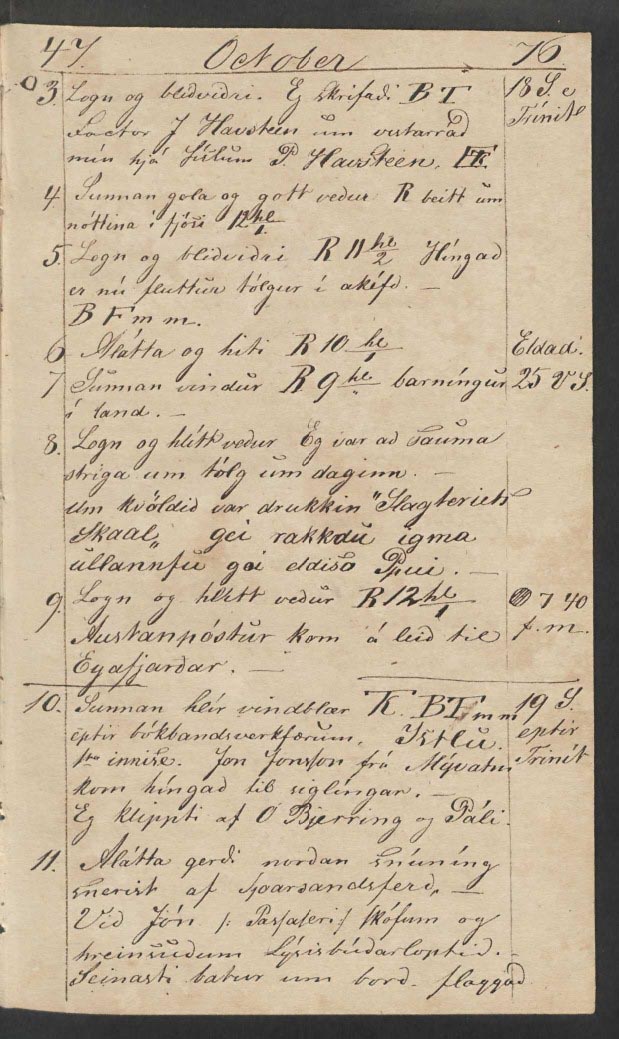 47. October 76.
3. Logn og blidvidri. Eg skrifadi BT 18 S. e
Factor J Havsteen um vistarrád Trinit
min hjá P. Havsteen.
4. Sunnan gola og gott vedur R beitt um
nóttina i fjósi 12 hl/1
5. Logn og blidvidri R 11 hl/2 Híngad
er nú fluttur tólgur í akifd. —
B F m m.
6 Alátta og hiti R 10 hl/1 Eldad.
7 Sunnan vindur R 9 hl/" barníngur 25 V S.
í land. —
8. Logn og hlítt vedur Eg var ad sauma
striga um tólg um daginn. —
Um kvöldid var drukkin "Slagteriets
Skaal„ gei rakkdu igma
ullannfu gei eddiso
9. Logn og hlítt vedur R 12 hl/1 7 40
Austanpóstur kom á leid til f. m.
Eyafjardar. —
10. Sunnan hlír vindblær K. BF m m 19 S.
eptir bókbandsverkfærum. eptir
innise. Jon Jonsson frá Mývatni Trinit
kom híngad til siglíngar. —
Eg klippti af O Bjerring og Páli.
11. Alátta gerdi nordan snúníng
snerist af —
Vid Jón /: Passaseri :/ skófum og
hreinsudum Lýsisbúdarloptid. —
Seinasti bátur um bord. flaggad